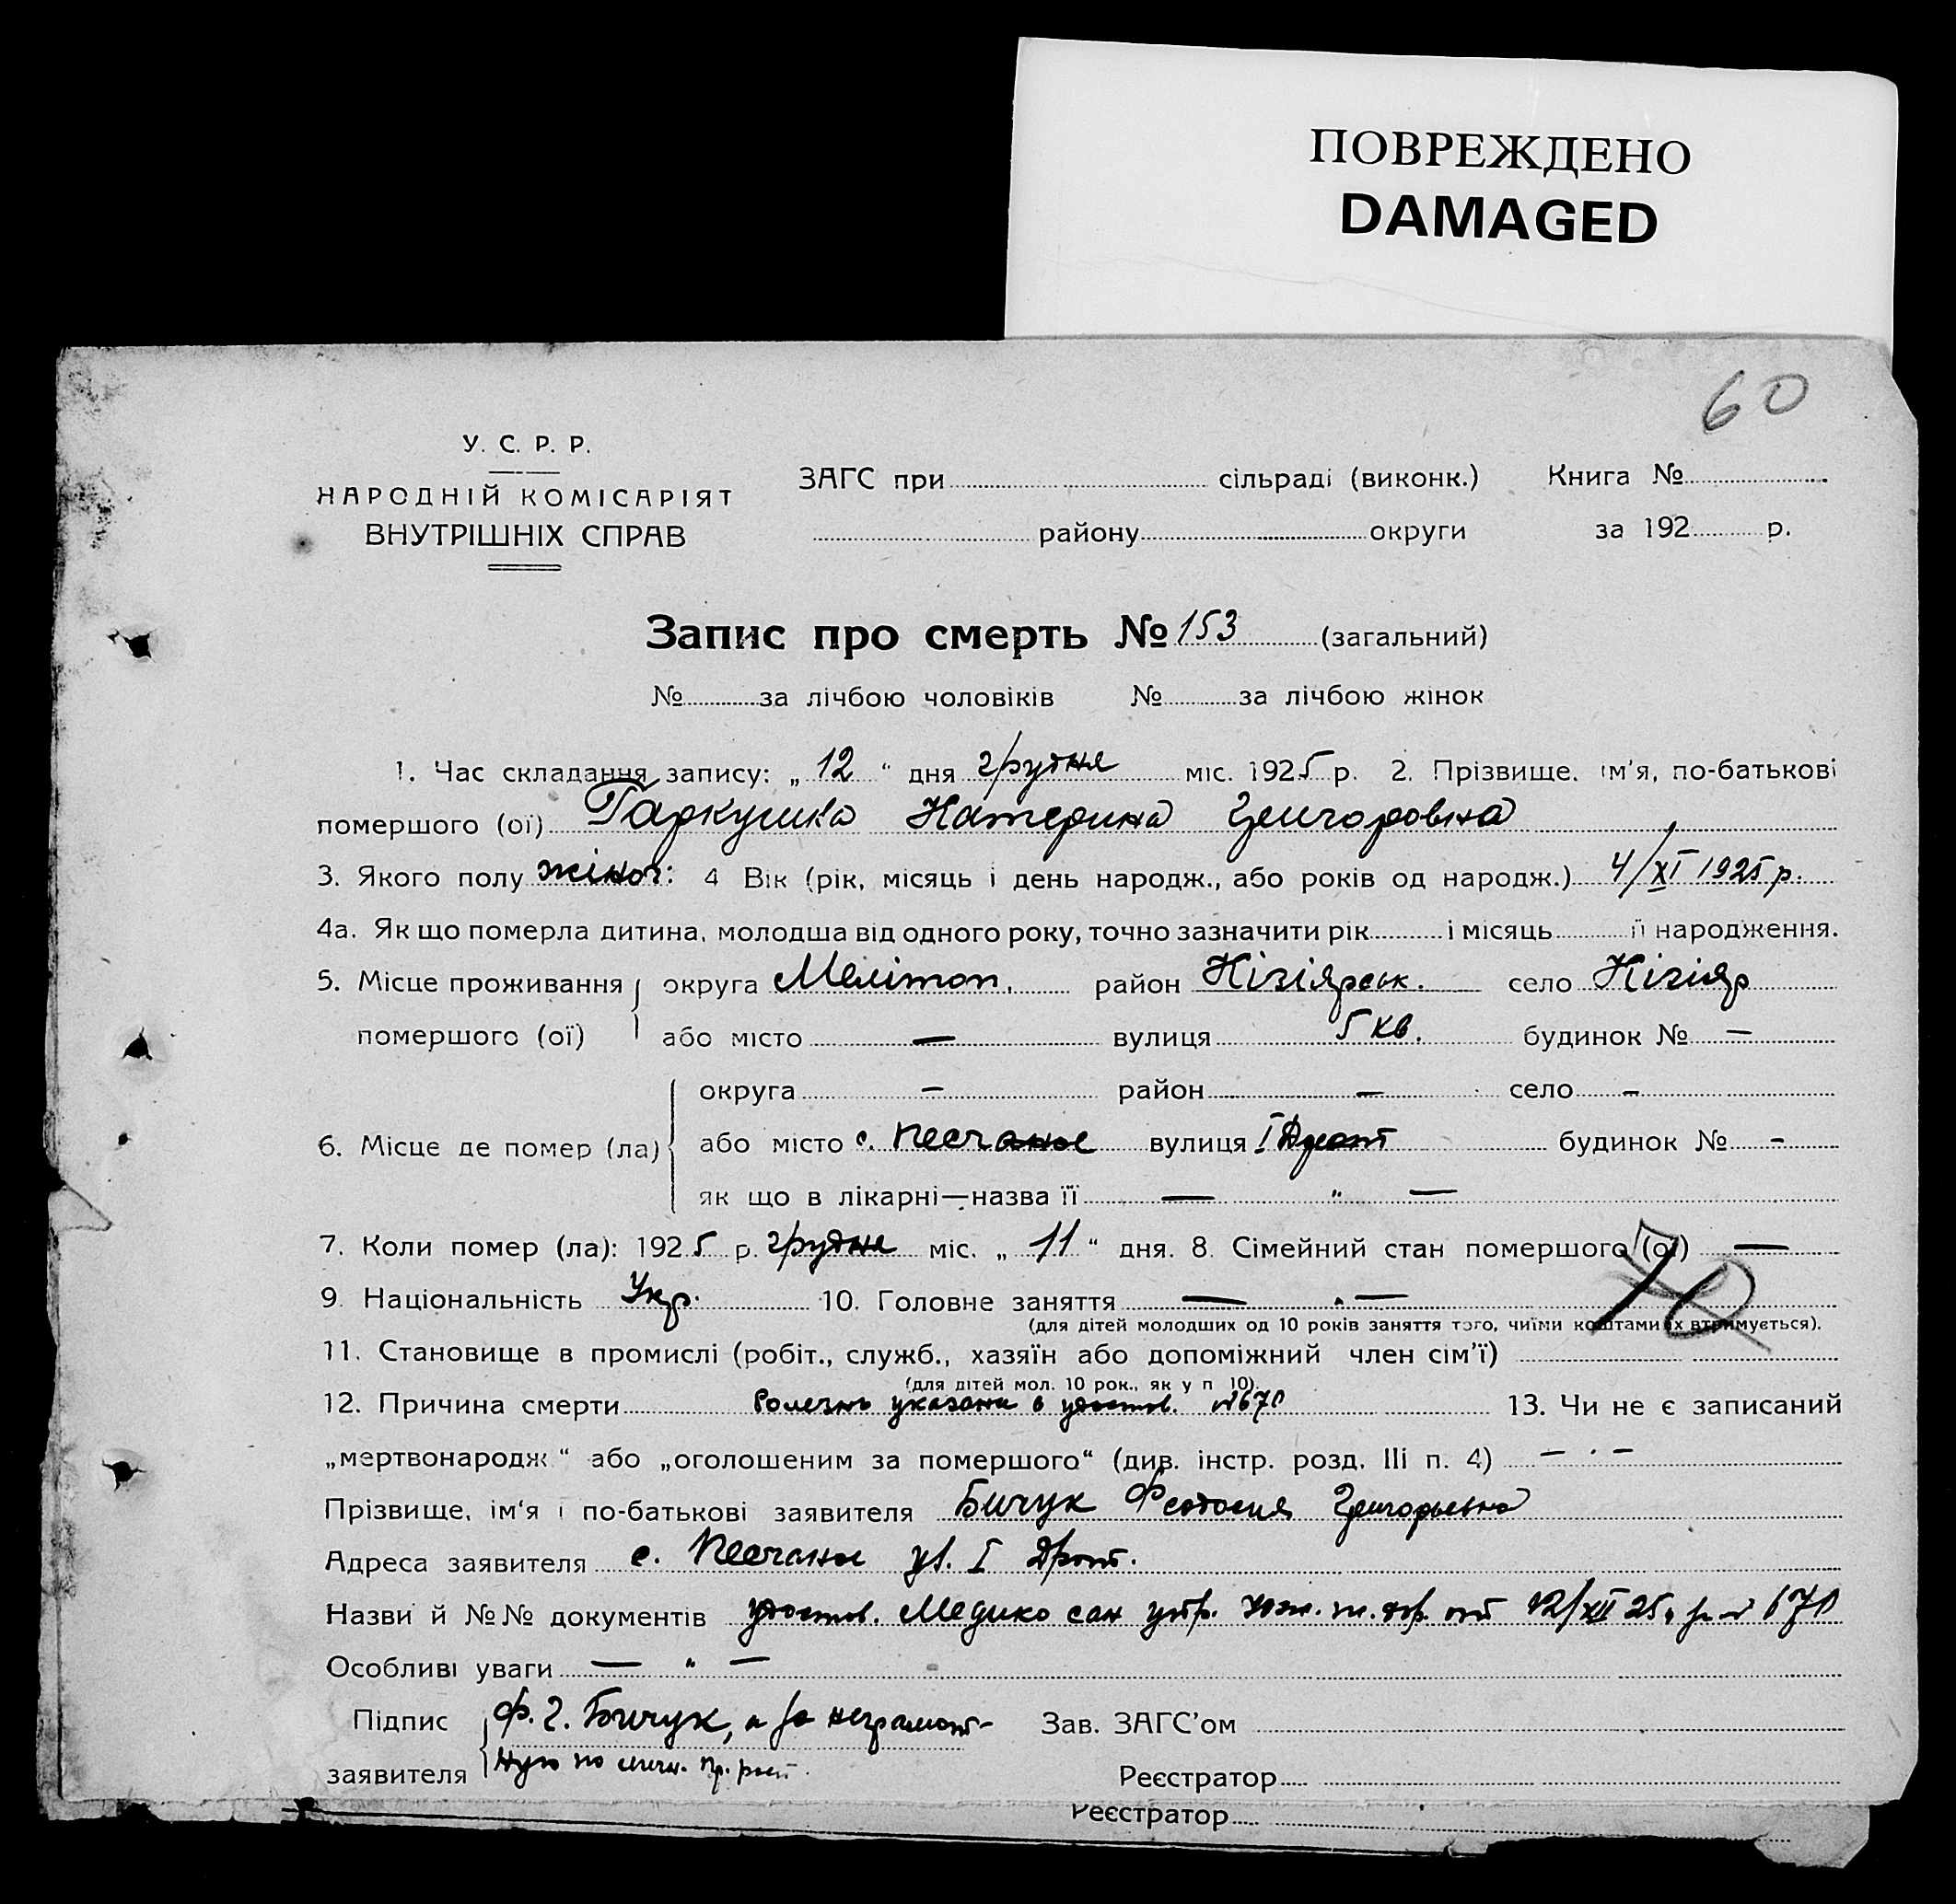 ПОВРЕЖДЕНО
DAMAGED
60
У. С. Р. Р.
НАРОДНІЙ КОМІСАРІЯТ
ВНУТРІШНІХ СПРАВ
ЗАГС при сільраді (виконк.) Книга №
району округи за 192 р.
Запис про смерть № 153 (загальний)
№ за лічбою чоловіків № за лічбою жінок
1. Час складання запису: „ 12 “ дня грудня міс. 1925 р. 2. Прізвище, ім'я, по-батькові
помершого (ої) Гаркушка Катерина Григоровна
3. Якого полу жіноч: 4 Вік (рік, місяць і день народж., або років од народж.) 4/XI 1925 р.
4а. Як що померла дитина, молодша від одного року, точно зазначити рік і місяць її народження.
5. Місце проживання округа Мелітоп. район Кізіярськ. село Кізіяр
помершого (ої) або місто — вулиця 5 кв. будинок № —
округа — район — село —
6. Місце де помер (ла) або місто с. Песчаное вулиця I будинок № -
як що в лікарні—назва її — " —
7. Коли помер (ла): 1925 р. грудня міс. „ 11 “ дня. 8. Сімейний стан помершого (ої) —
9. Національність Укр. 10. Головне заняття — " —
(для дітей молодших од 10 років заняття того, чиїми коштами їх втримується).
11. Становище в промислі (робіт., служб., хазяїн або допоміжний член сім'ї)
(для дітей мол. 10 рок., як у п 10).
12. Причина смерти болезнь указана в удостов. № 670 13. Чи не є записаний
„мертвонародж “ або „оголошеним за помершого“ (див. інстр. розд. III п. 4) — . —
Прізвище, ім'я і по-батькові заявителя Бичук Феодосия Григорьевна
Адреса заявителя с. Песчаное ул. I
Назви й №№ документів удостов. Медико сан от 12/XII 25 № 670
Особливі уваги — " —
Підпис Ф. Г. Бичук, а за неграмот- Зав. ЗАГС'ом
заявителя ную по Реєстратор
Реєстратор